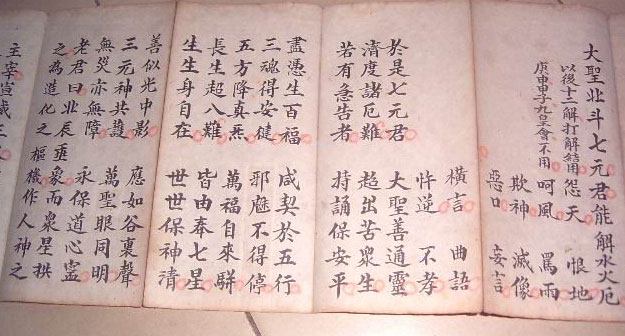 大聖北斗七元君能解水火厄
以後十二解打解結用 怨天 恨地
庚申甲子九皇會不用 呵風 罵雨
欺神 滅像
惡口 妄言
橫言 曲語
忤逆 不孝
於是七元君 大聖善通靈
清度諸厄難 超出苦眾生
若有急告者 持誦保安平
盡憑生百福 咸契於五行
三魂得安健 邪魅不得停
五方降真炁 萬福自來駢
長生超八難 皆由奉七星
生生身自在 世世保神清
善似光中影 應如谷裏聲
三元神共護 萬聖眼同明
無災亦無障 永保道心寧
老君曰北辰垂象而衆星拱
之為造化之樞機作人神之
主宰宣威三